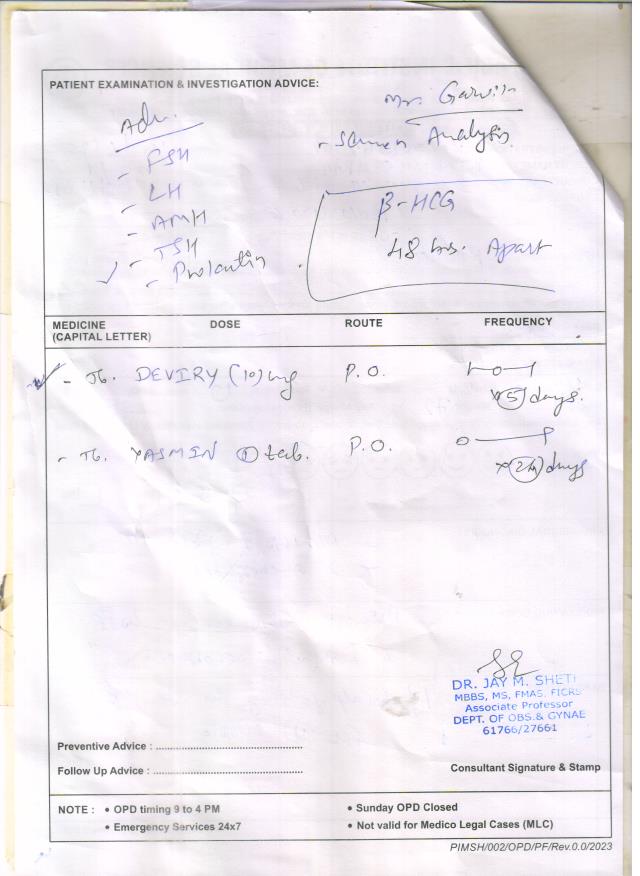 PATIENT EXAMINATION & INVESTIGATION ADVICE:
Mr. Garvin
Adv.
- Semen Analysis.
- FSH
- LH
- AMH
- TSH
- Prolactin
β-HCG
48 hrs. Apart
MEDICINE DOSE ROUTE FREQUENCY
(CAPITAL LETTER)
- Tb. DEVIRY (10)mg P.O. 1-0-1
x(5) days.
- Tb. YASMIN ① tab. P.O. 0-1
x days
DR. JAY M. SHETI
MBBS, MS, FMAS, FICRS
Associate Professor
DEPT. OF OBS.& GYNAE
61766/27661
Preventive Advice : ................................................
Follow Up Advice : ................................................
Consultant Signature & Stamp
NOTE : • OPD timing 9 to 4 PM • Sunday OPD Closed
• Emergency Services 24x7 • Not valid for Medico Legal Cases (MLC)
PIMSH/002/OPD/PF/Rev.0.0/2023